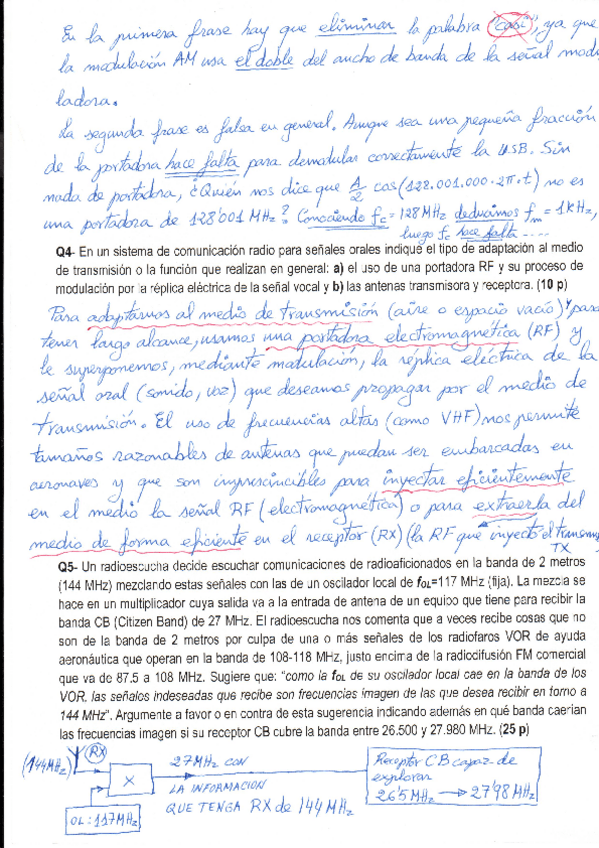 En la primera frase hay que eliminar la palabra "casi", ya que
la modulación AM usa el doble del ancho de banda de la señal modu
ladora.
La segunda frase es falsa en general. Aunque sea una pequeña fracción
de la portadora hace falta para demodular correctamente la USB. Sin
nada de portadora, ¿Quién nos dice que A/2 cos(128.001.000·2π·t) no es
una portadora de 128'001 MHz? Conociendo fc = 128 MHz deducimos fm = 1 kHz,
luego fc hace falta ....
Q4- En un sistema de comunicación radio para señales orales indique el tipo de adaptación al medio
de transmisión o la función que realizan en general: a) el uso de una portadora RF y su proceso de
modulación por la réplica eléctrica de la señal vocal y b) las antenas transmisora y receptora. (10 p)
Para adaptarnos al medio de transmisión (aire o espacio vacío) y para
tener largo alcance, usamos una portadora electromagnética (RF) y
le superponemos, mediante modulación, la réplica eléctrica de la
señal oral (sonido, voz) que deseamos propagar por el medio de
transmisión. El uso de frecuencias altas (como VHF) nos permite
tamaños razonables de antenas que puedan ser embarcadas en
aeronaves y que son imprescincibles para inyectar eficientemente
en el medio la señal RF (electromagnética) o para extraerla del
medio de forma eficiente en el receptor (RX) (la RF que inyectó el transm
TX
Q5- Un radioescucha decide escuchar comunicaciones de radioaficionados en la banda de 2 metros
(144 MHz) mezclando estas señales con las de un oscilador local de fOL=117 MHz (fija). La mezcla se
hace en un multiplicador cuya salida va a la entrada de antena de un equipo que tiene para recibir la
banda CB (Citizen Band) de 27 MHz. El radioescucha nos comenta que a veces recibe cosas que no
son de la banda de 2 metros por culpa de una o más señales de los radiofaros VOR de ayuda
aeronáutica que operan en la banda de 108-118 MHz, justo encima de la radiodifusión FM comercial
que va de 87.5 a 108 MHz. Sugiere que: "como la fOL de su oscilador local cae en la banda de los
VOR, las señales indeseadas que recibe son frecuencias imagen de las que desea recibir en torno a
144 MHz". Argumente a favor o en contra de esta sugerencia indicando además en qué banda caerían
las frecuencias imagen si su receptor CB cubre la banda entre 26.500 y 27.980 MHz. (25 p)
(144MHz) RX
27MHz CON
LA INFORMACION
QUE TENGA RX de 144 MHz
X
OL: 117MHz
Receptor CB capaz de
explorar
26'5 MHz → 27'98 MHz